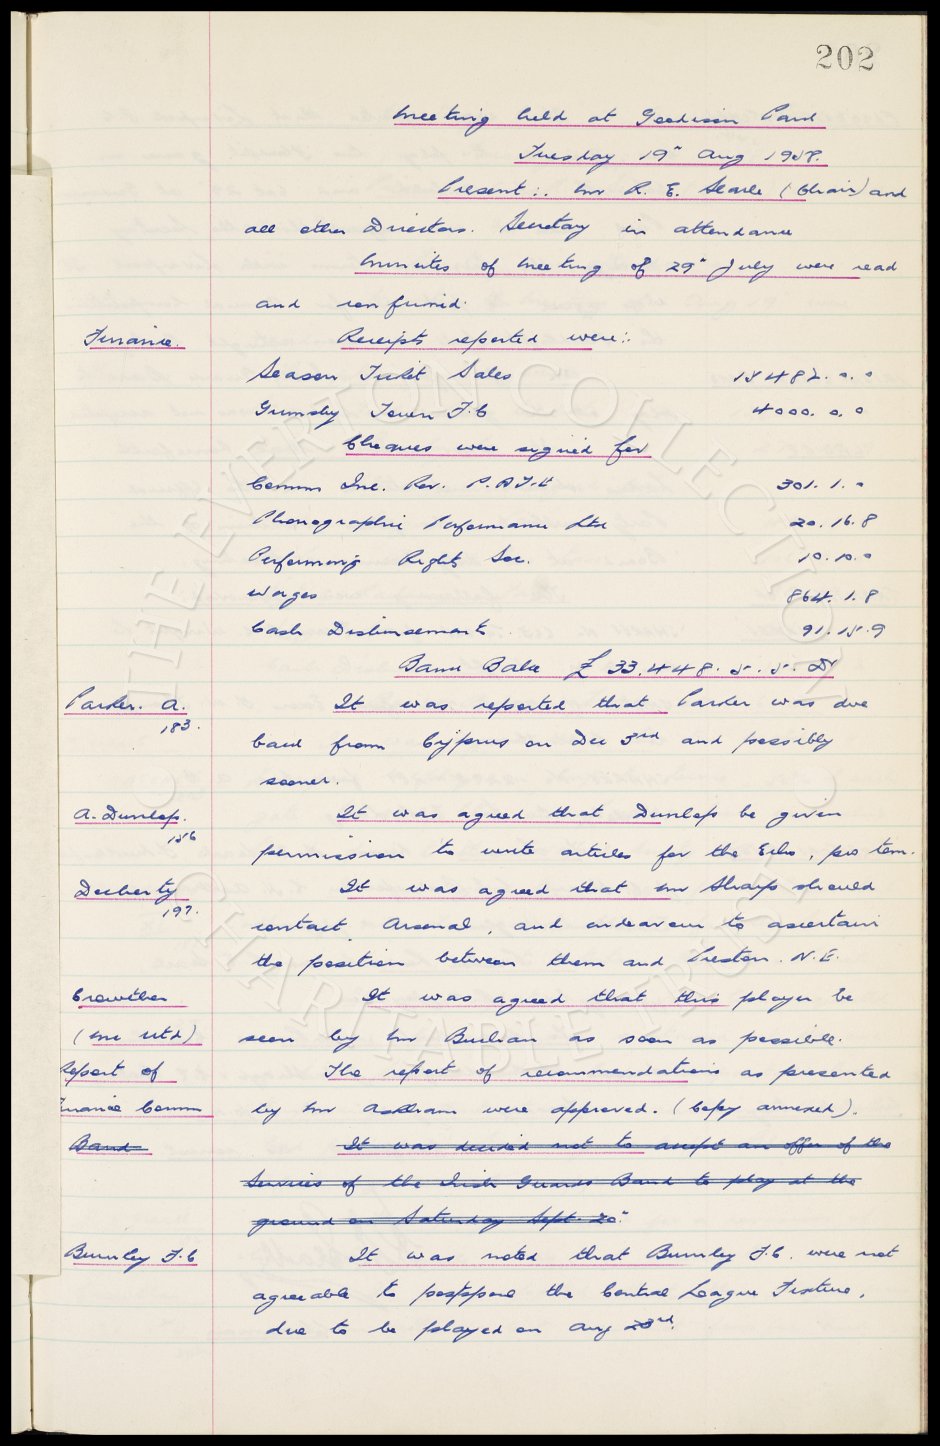 202
Meeting held at Goodison Park
Tuesday 19" Aug 1958.
Present:. Mr R. E. Searle (Chair) and
all other Directors. Secretary in attendance
Minutes of Meeting of 29" July were read
and confirmed.
Finance. Receipts reported were:.
Season Ticket Sales 15482. 0. 0
Grimsby Town F.C 4000. 0. 0
Cheques were signed for
Comm Inc. Rev. P.A.Y.E 301. 1. 0
Phonographic Performance Ltd 20. 16. 8
Performing Right Soc. 10. 10. 0
Wages 864. 1. 8
Cash Disbursements. 91. 15. 9
Bank Balce £ 33.448. 5. 5. Dr
Parker. A. It was reported that Parker was due
183.
back from Cyprus on Dec 3rd and possibly
sooner.
A. Dunlop. It was agreed that Dunlop be given
156
permission to write articles for the Echo, pro tem.
Docherty It was agreed that Mr Sharp should
197.
contact Arsenal, and endeavour to ascertain
the position between them and Preston. N.E.
Crowther It was agreed that this player be
(Mc Utd) seen by Mr Buchan as soon as possible.
Report of The report of recommendations as presented
Finance Comm by Mr Askham were approved. (Copy annexed).
Band It was decided not to accept an offer of the
Services of the Irish Guards Band to play at the
ground on Saturday Sept. 20".
Burnley F.C It was noted that Burnley F.C. were not
agreeable to postpone the Central League Fixture,
due to be played on Aug 23rd.
THE EVERTON COLLECTION
CHARITABLE TRUST